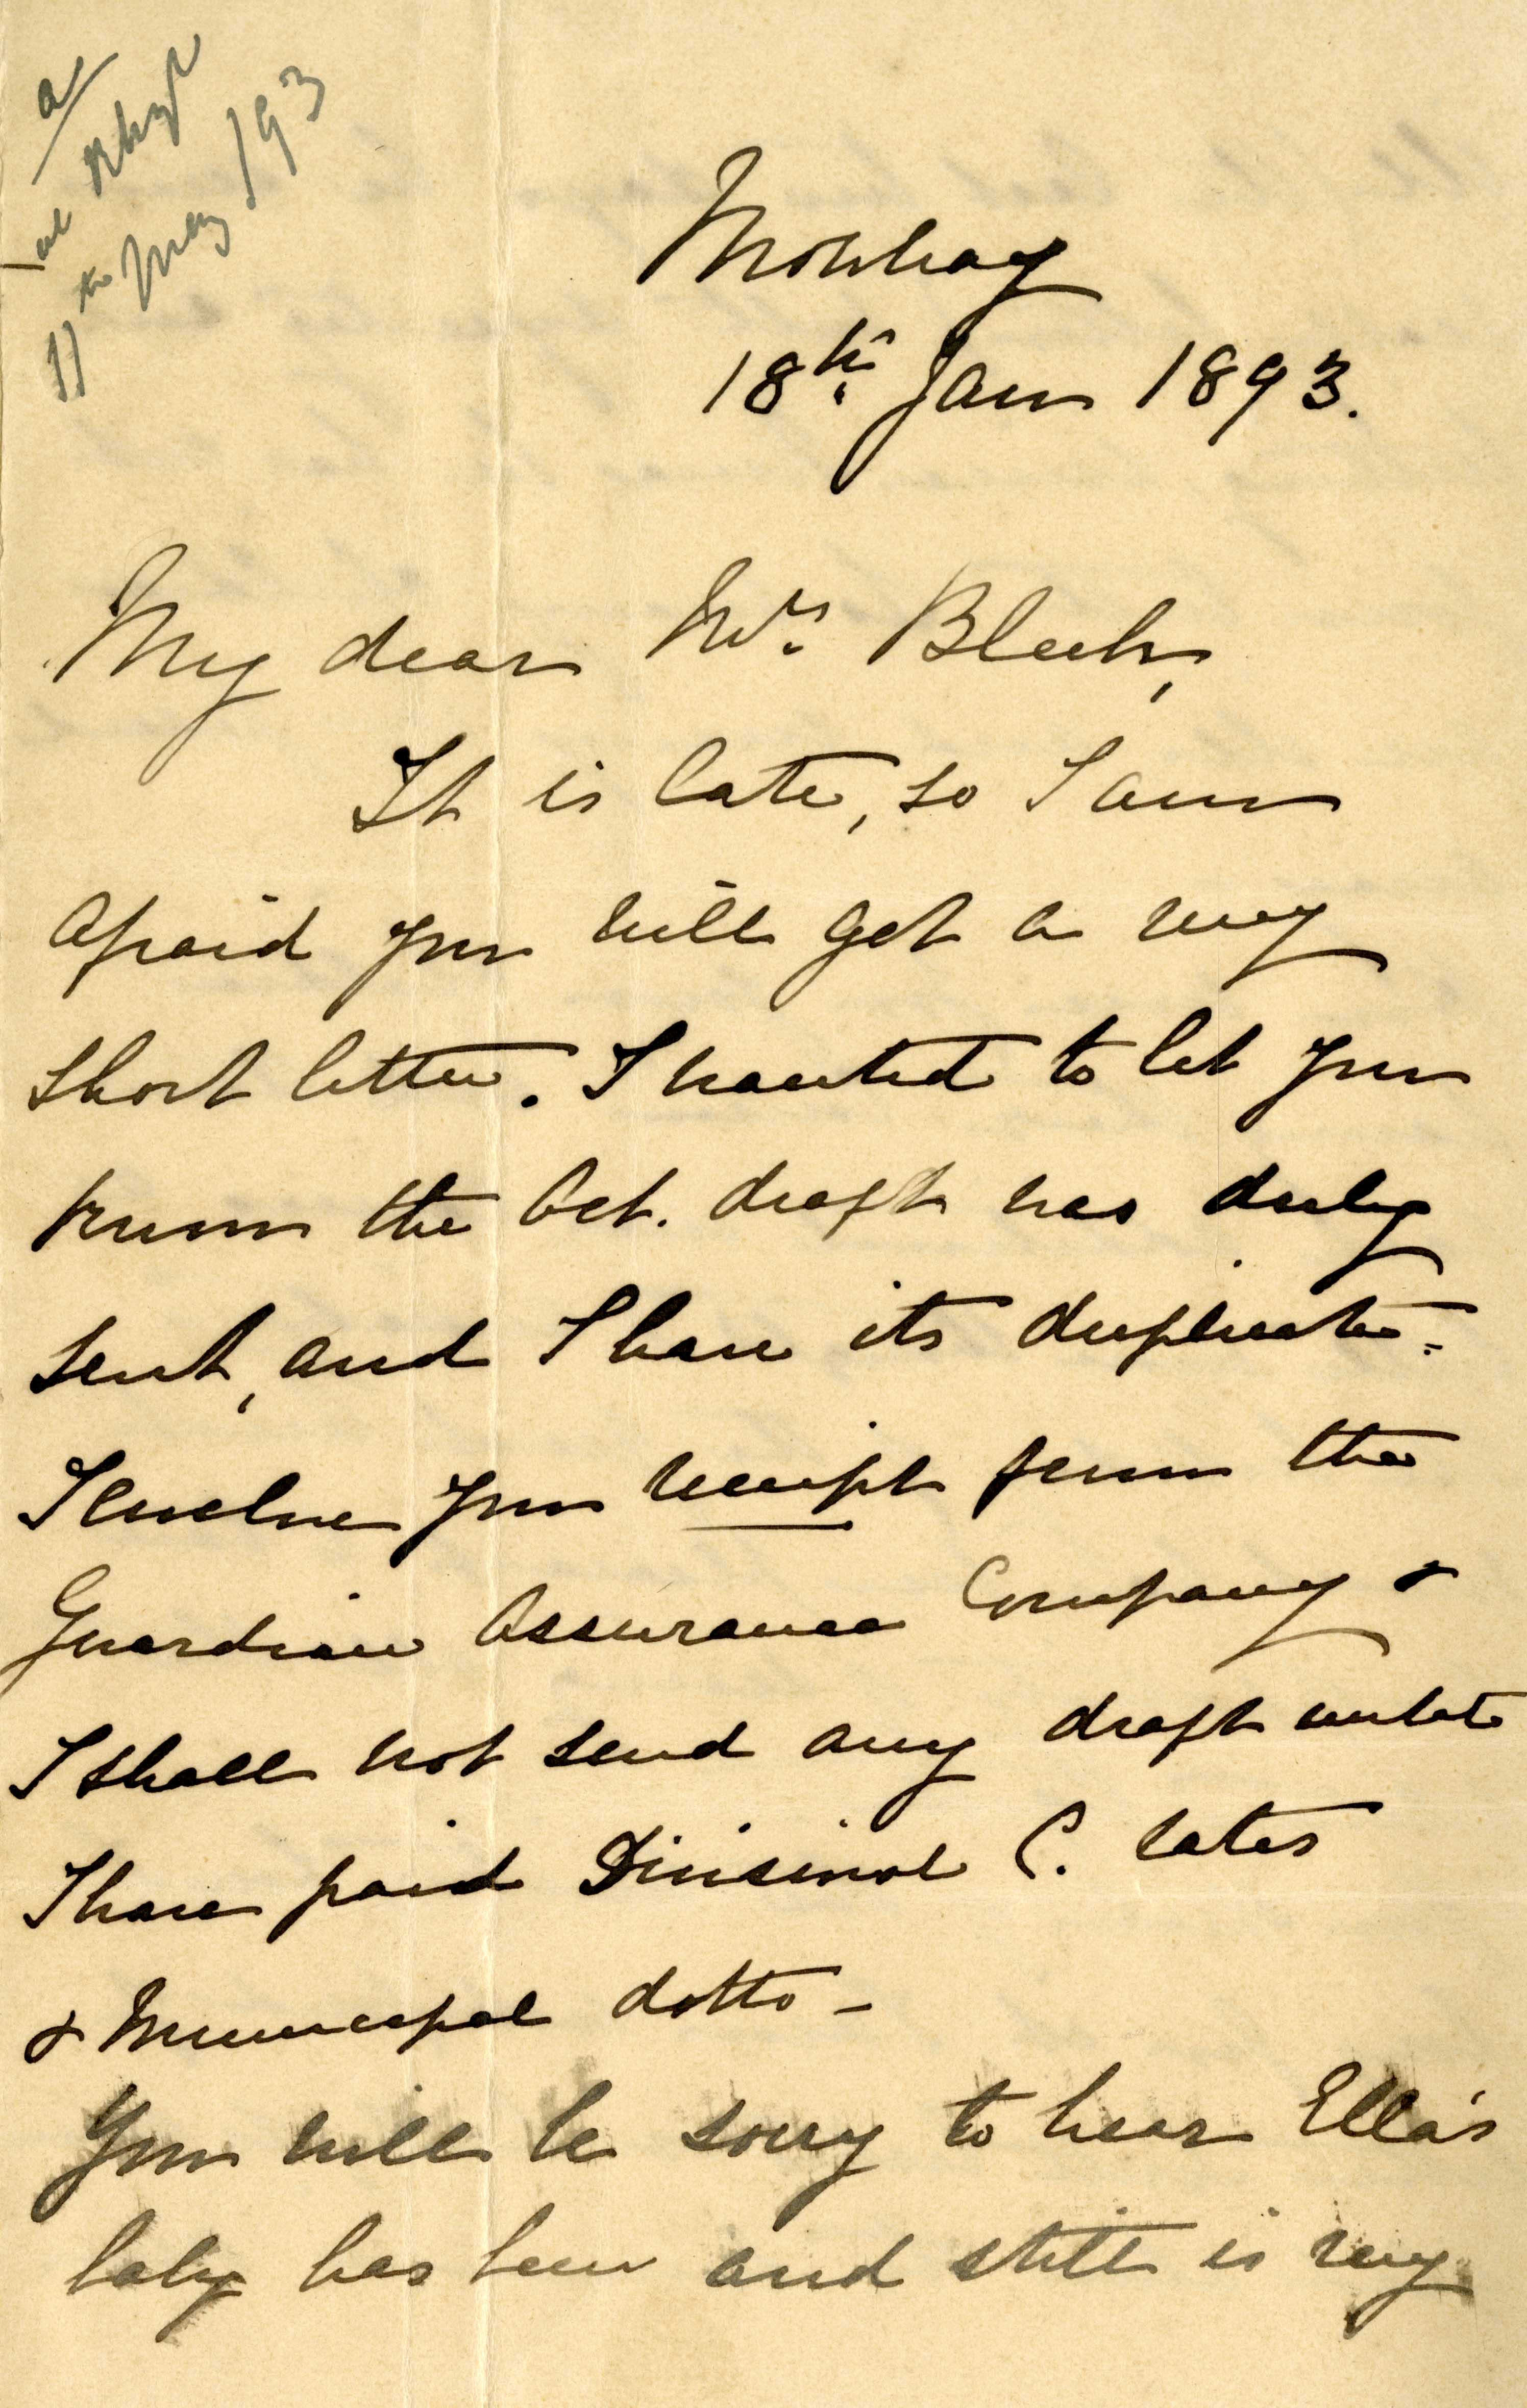 a/
at Rhyl
11th May /93
Mowbray
18th Jan 1893.
My dear Mrs Bleek,
It is late, so I am
afraid you will get a very
short letter. I wanted to let you
know the Oct. draft was duly
sent, and I have its duplicate.
I enclose your receipt from the
Guardian Assurance Company &
I shall not send any draft until
I have paid Divisional C. rates
& Municipal ditto -
You will be sorry to hear Ella's
baby has been and still is very